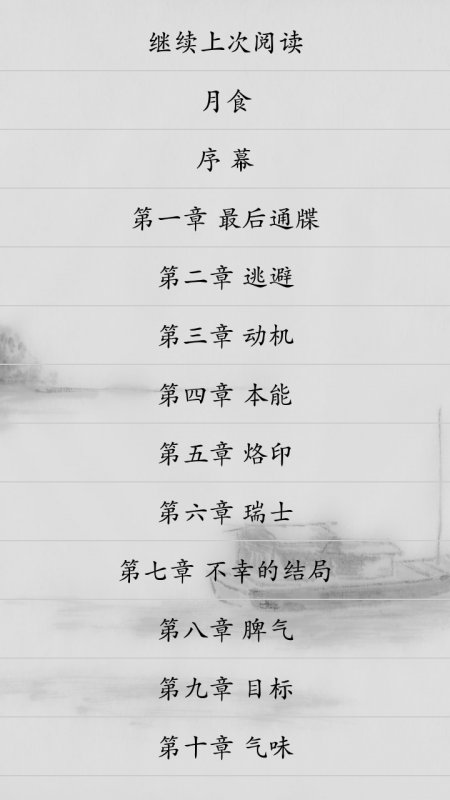 继续上次阅读
月食
序 幕
第一章 最后通牒
第二章 逃避
第三章 动机
第四章 本能
第五章 烙印
第六章 瑞士
第七章 不幸的结局
第八章 脾气
第九章 目标
第十章 气味